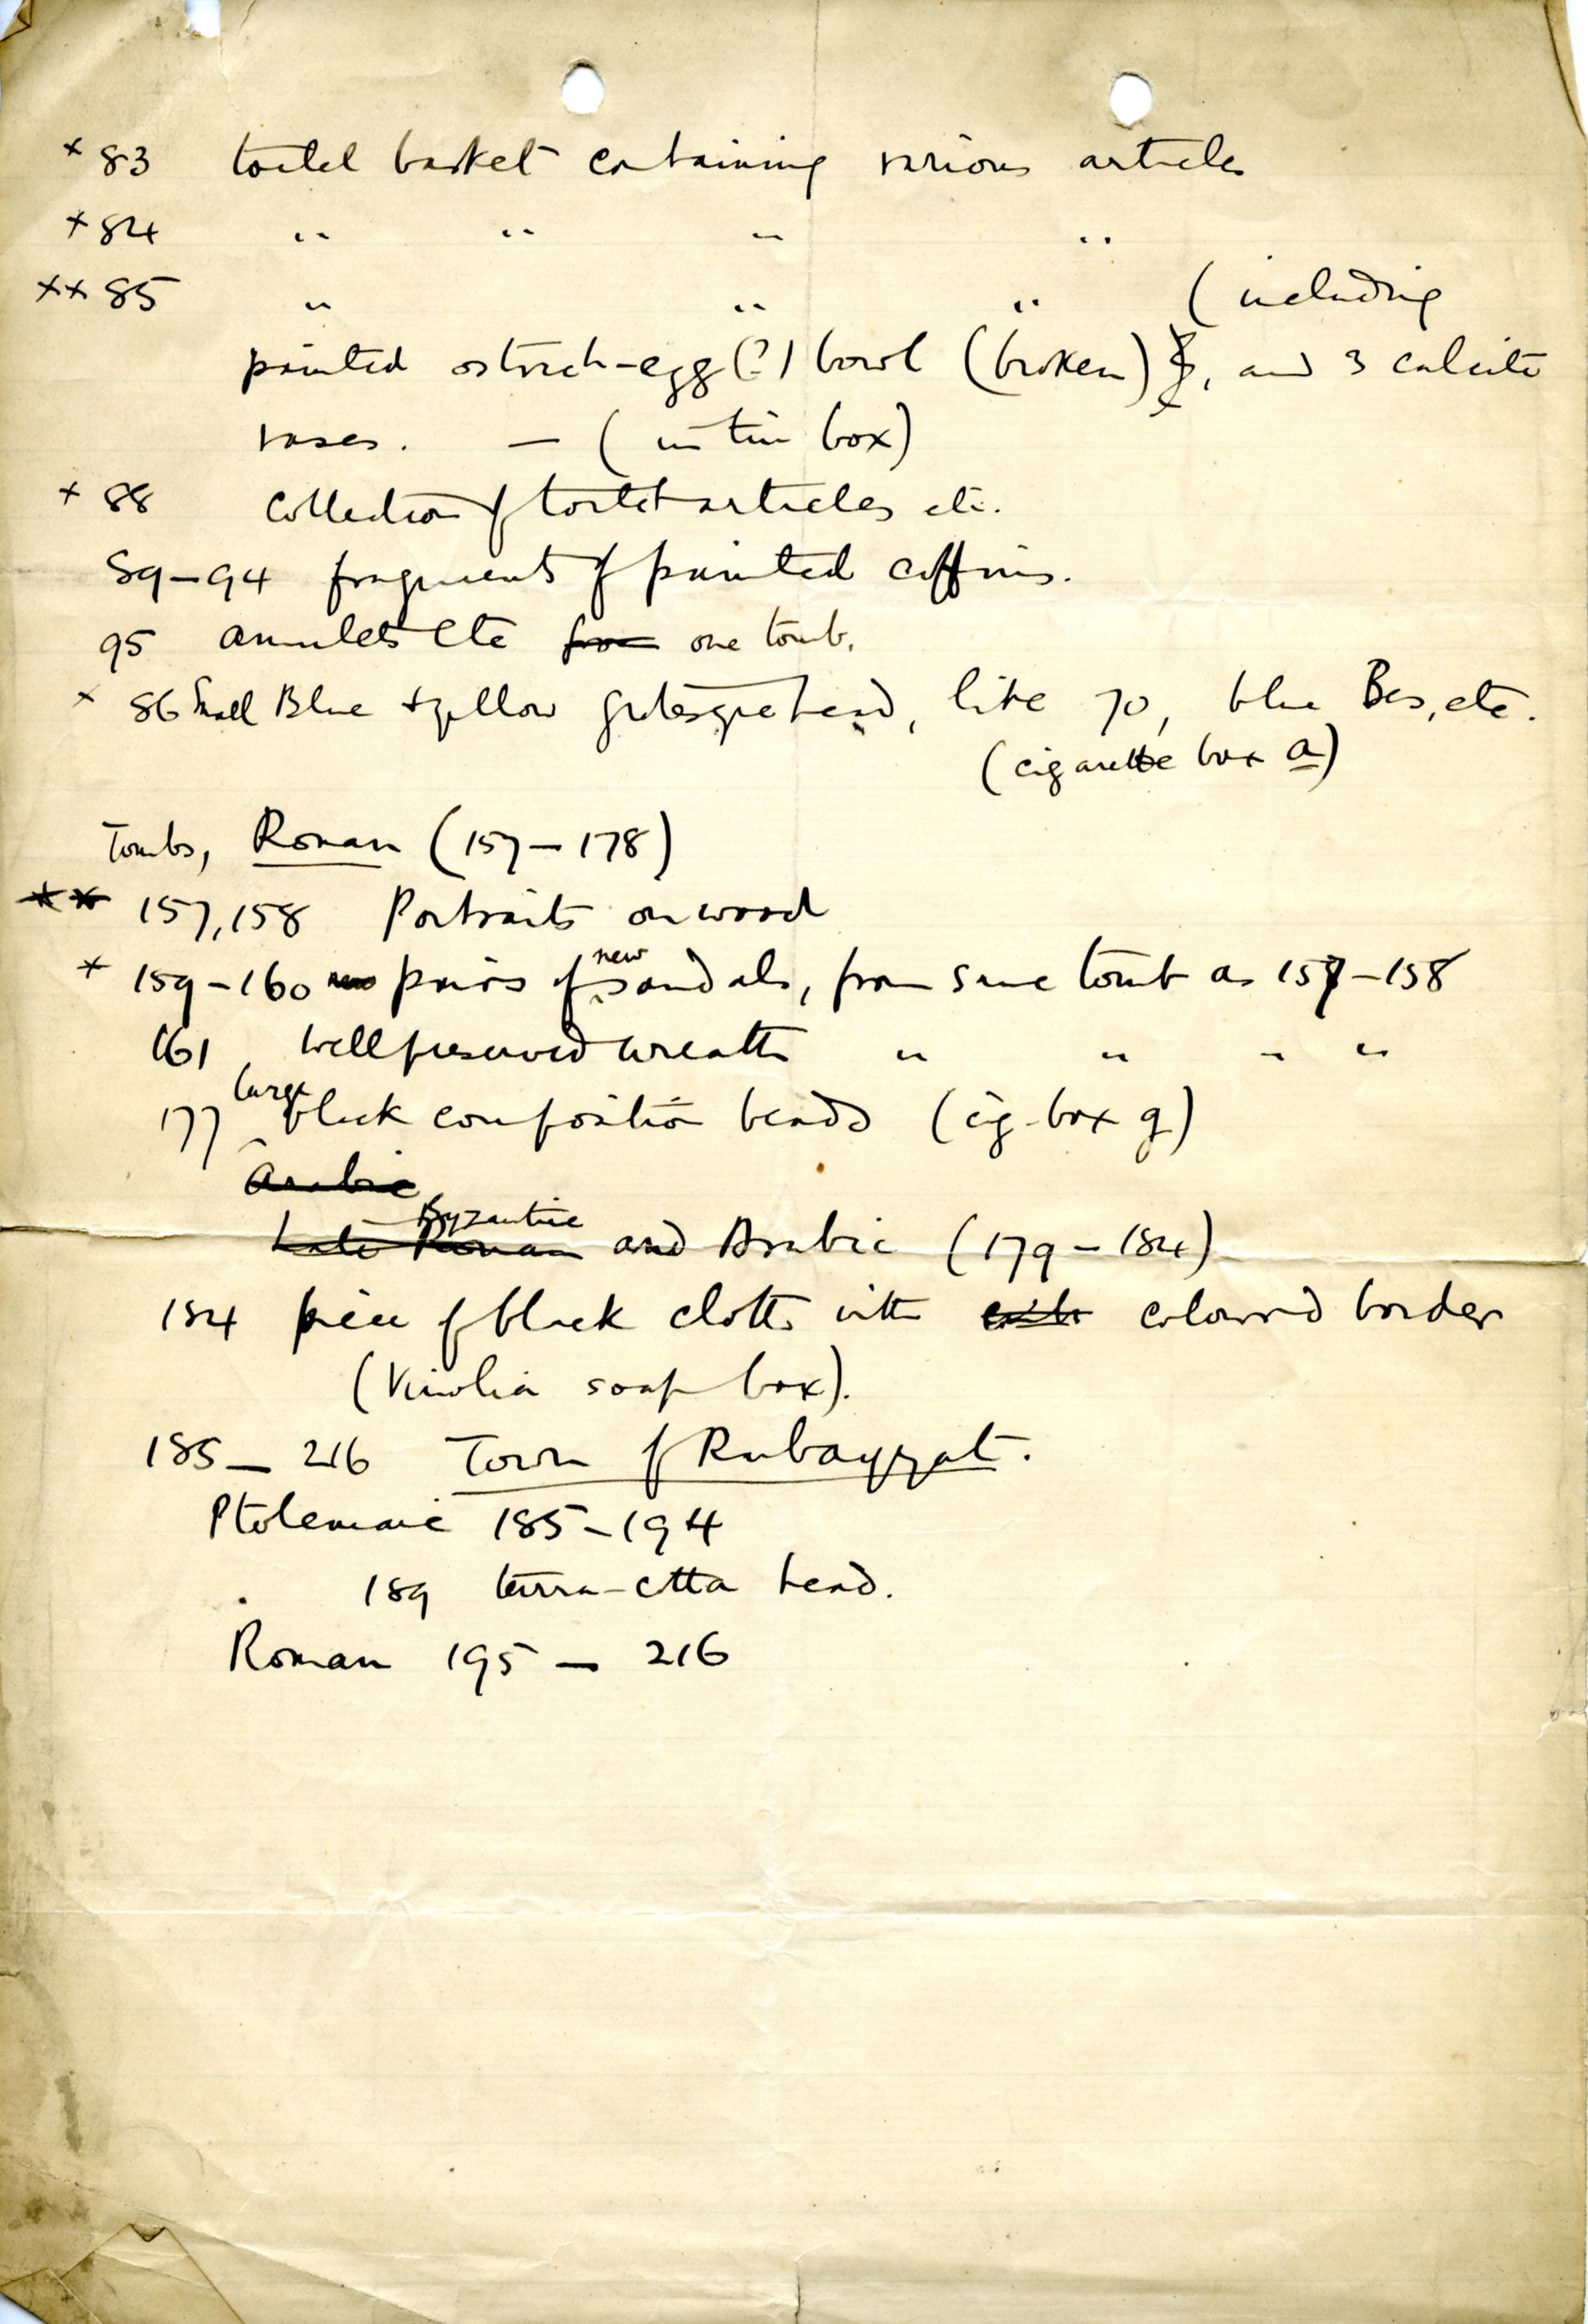 × 83 toilet basket containing various articles
× 84 " " " "
×× 85 " " " (including
painted ostrich-egg (?) bowl (broken), and 3 calcite
vases. — (in tin box)
× 88 Collection of toilet articles etc.
89–94 fragments of painted coffins.
95 amulets etc from one tomb.
× 86 Small Blue + yellow grotesque head, like 70, blue Bes, etc.
(cigarette box a)
Tombs, Roman (157–178)
** 157, 158 Portraits on wood
* 159–160 new pairs of new sandals, from same tomb as 157–158
161 Well preserved wreath " " " "
177 large black composition beads (cig. box g)
Arabic
Late Roman Byzantine and Arabic (179–184)
184 piece of black cloth with coloured border
(Vinolia soap box).
185–216 Town of Rubayyat.
Ptolemaic 185–194
189 terra-cotta head.
Roman 195–216